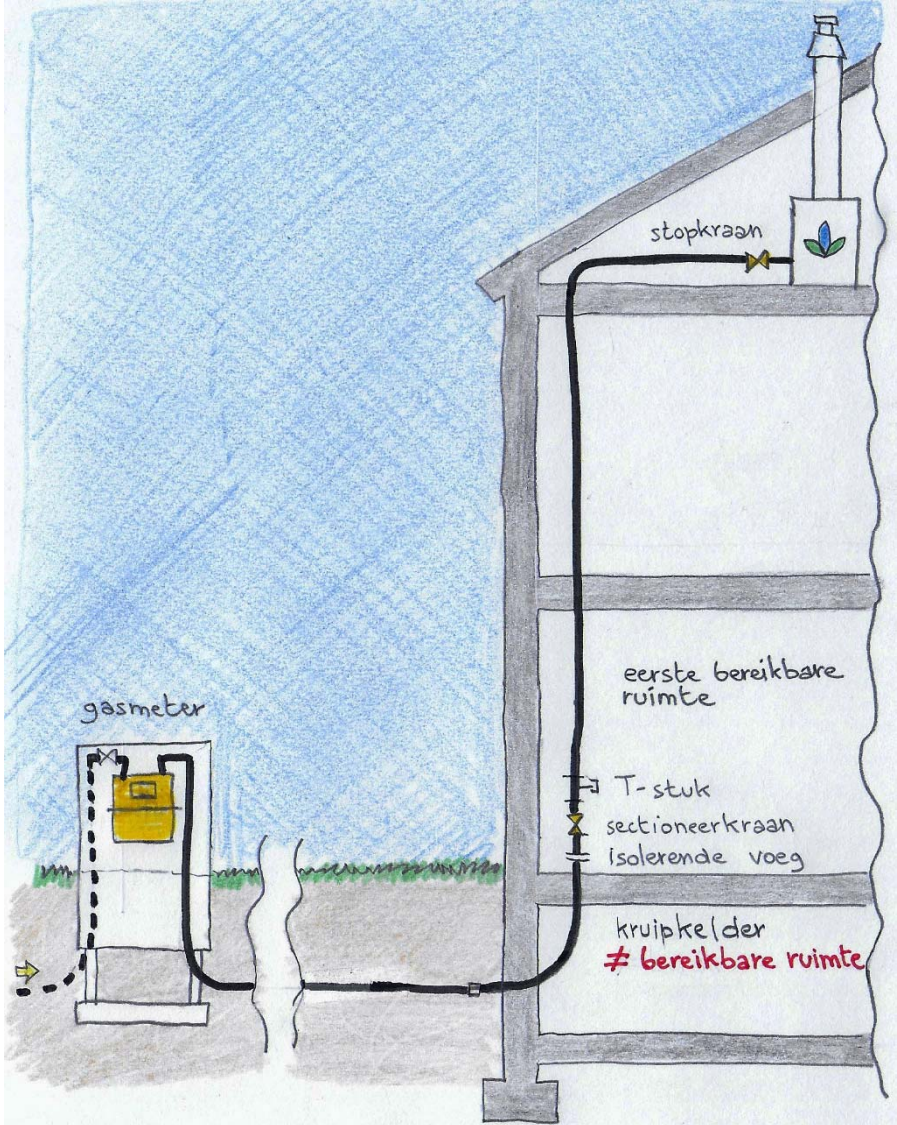 stopkraan
eerste bereikbare
ruimte
gasmeter
T-stuk
sectioneerkraan
isolerende voeg
kruipkelder
≠ bereikbare ruimte